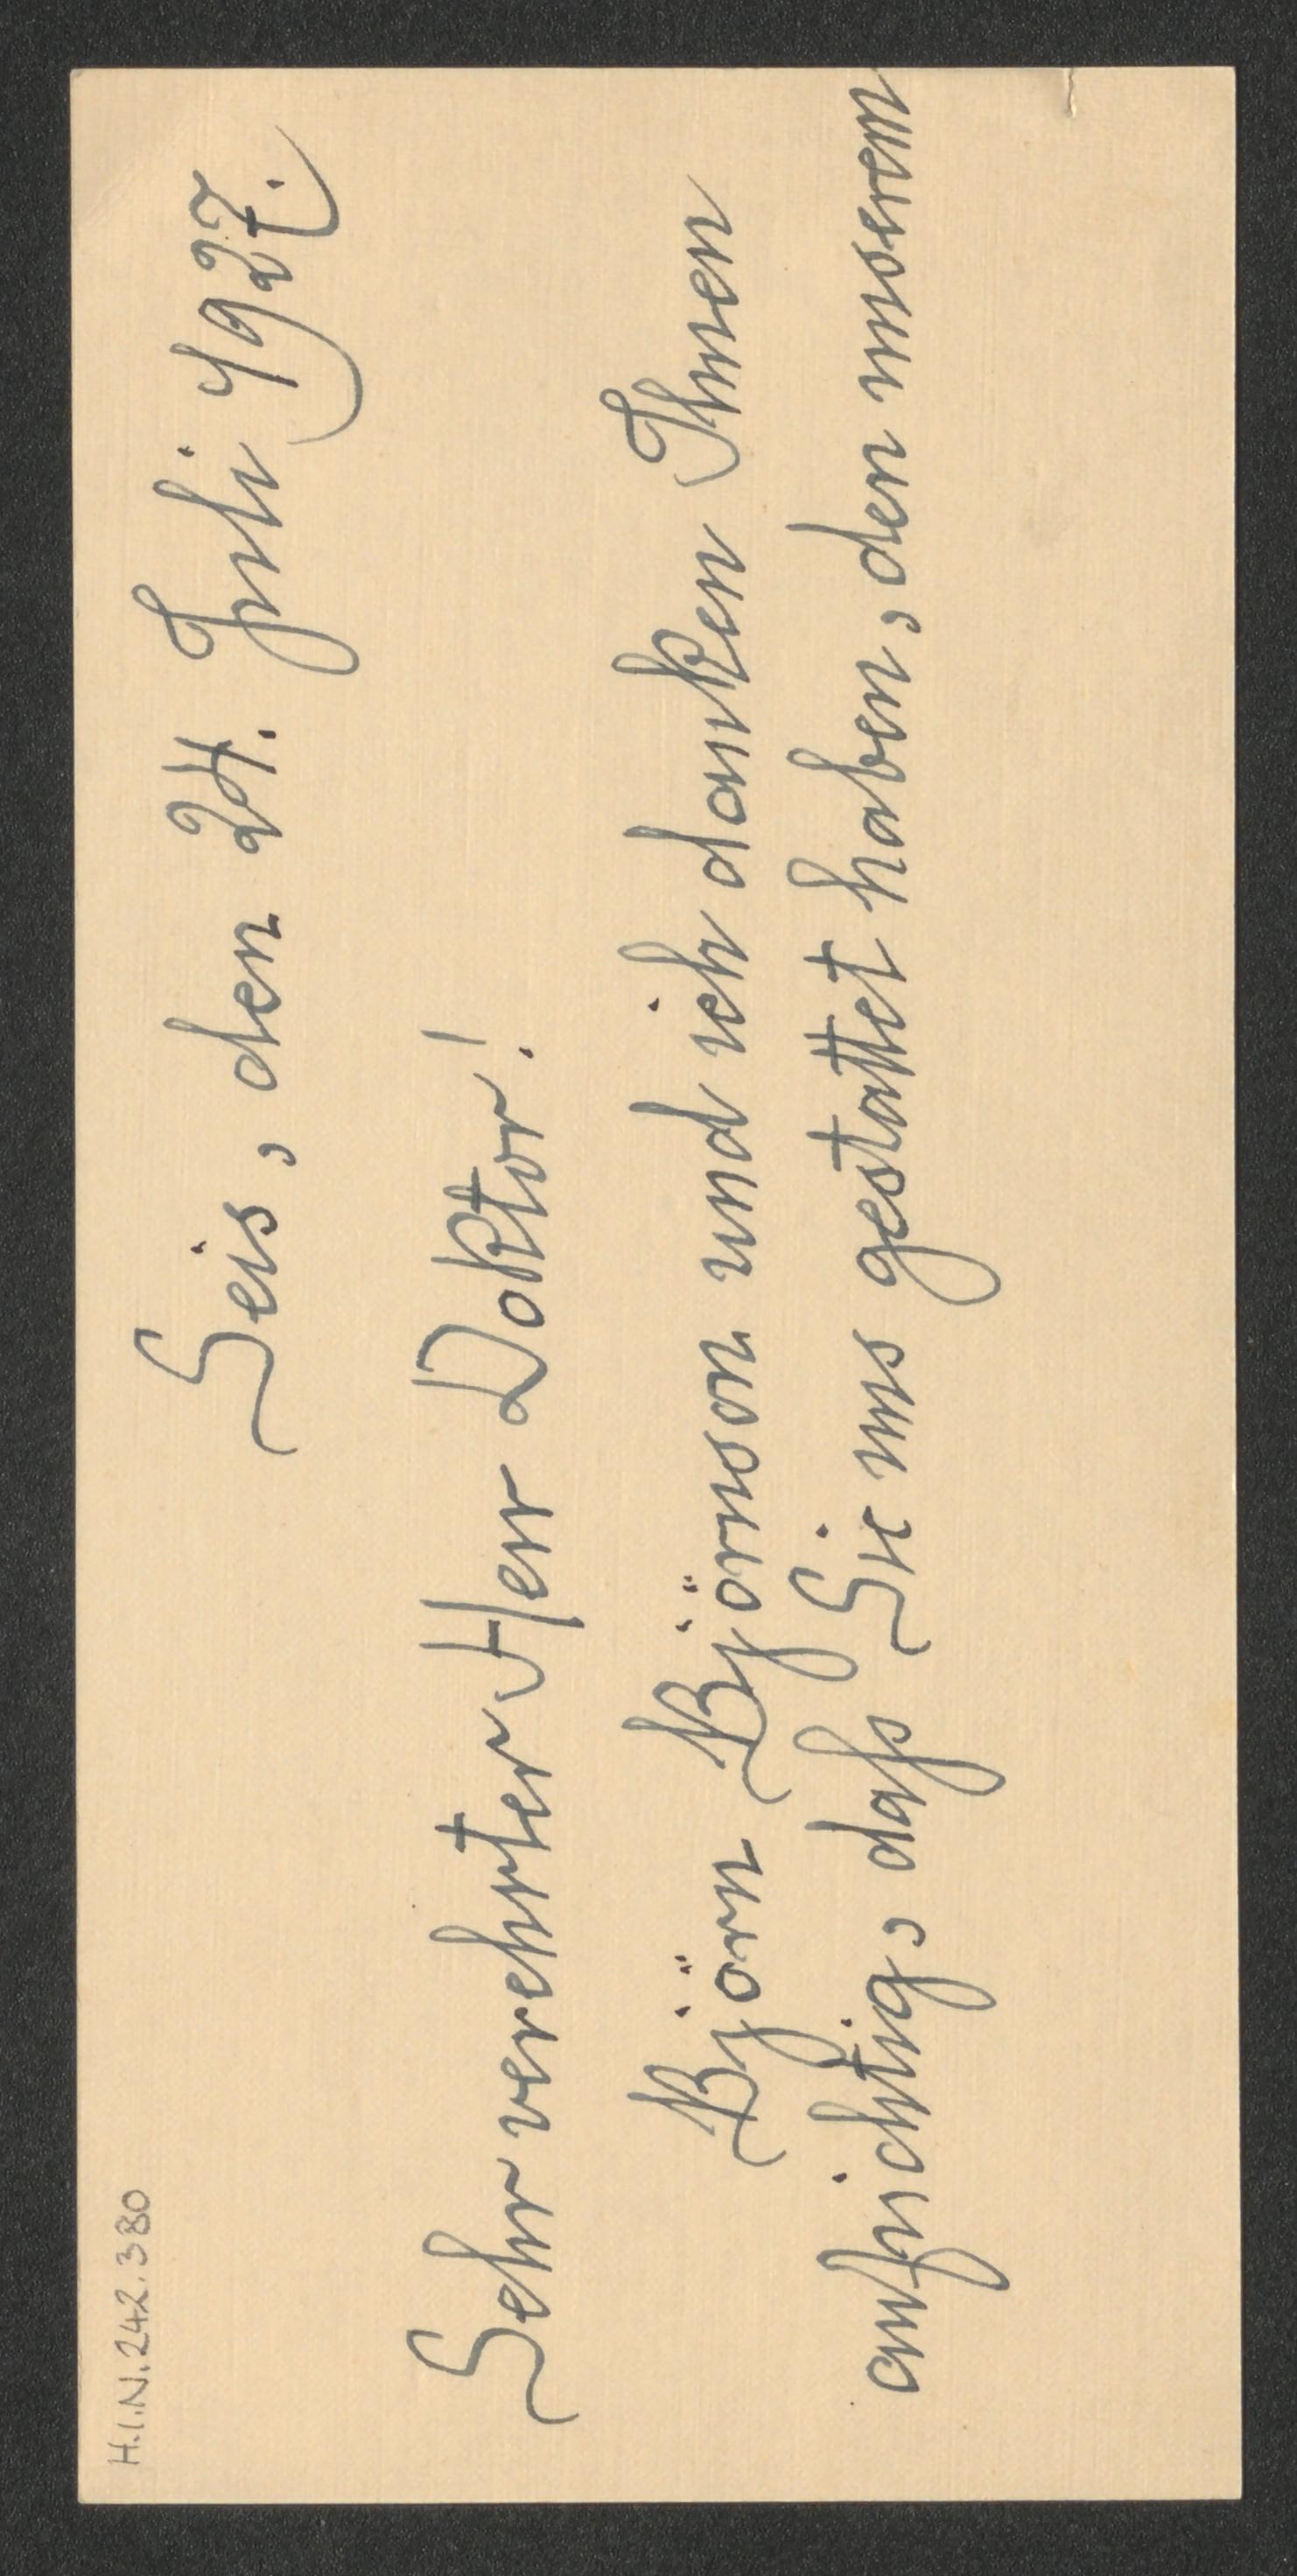 H.I.N. 242.380
Seis, den 24. Juli 1927.
Sehr verehrter Herr Doktor!
Björn Björnson und ich danken Ihnen
aufrichtig, daß Sie uns gestattet haben, den unserem